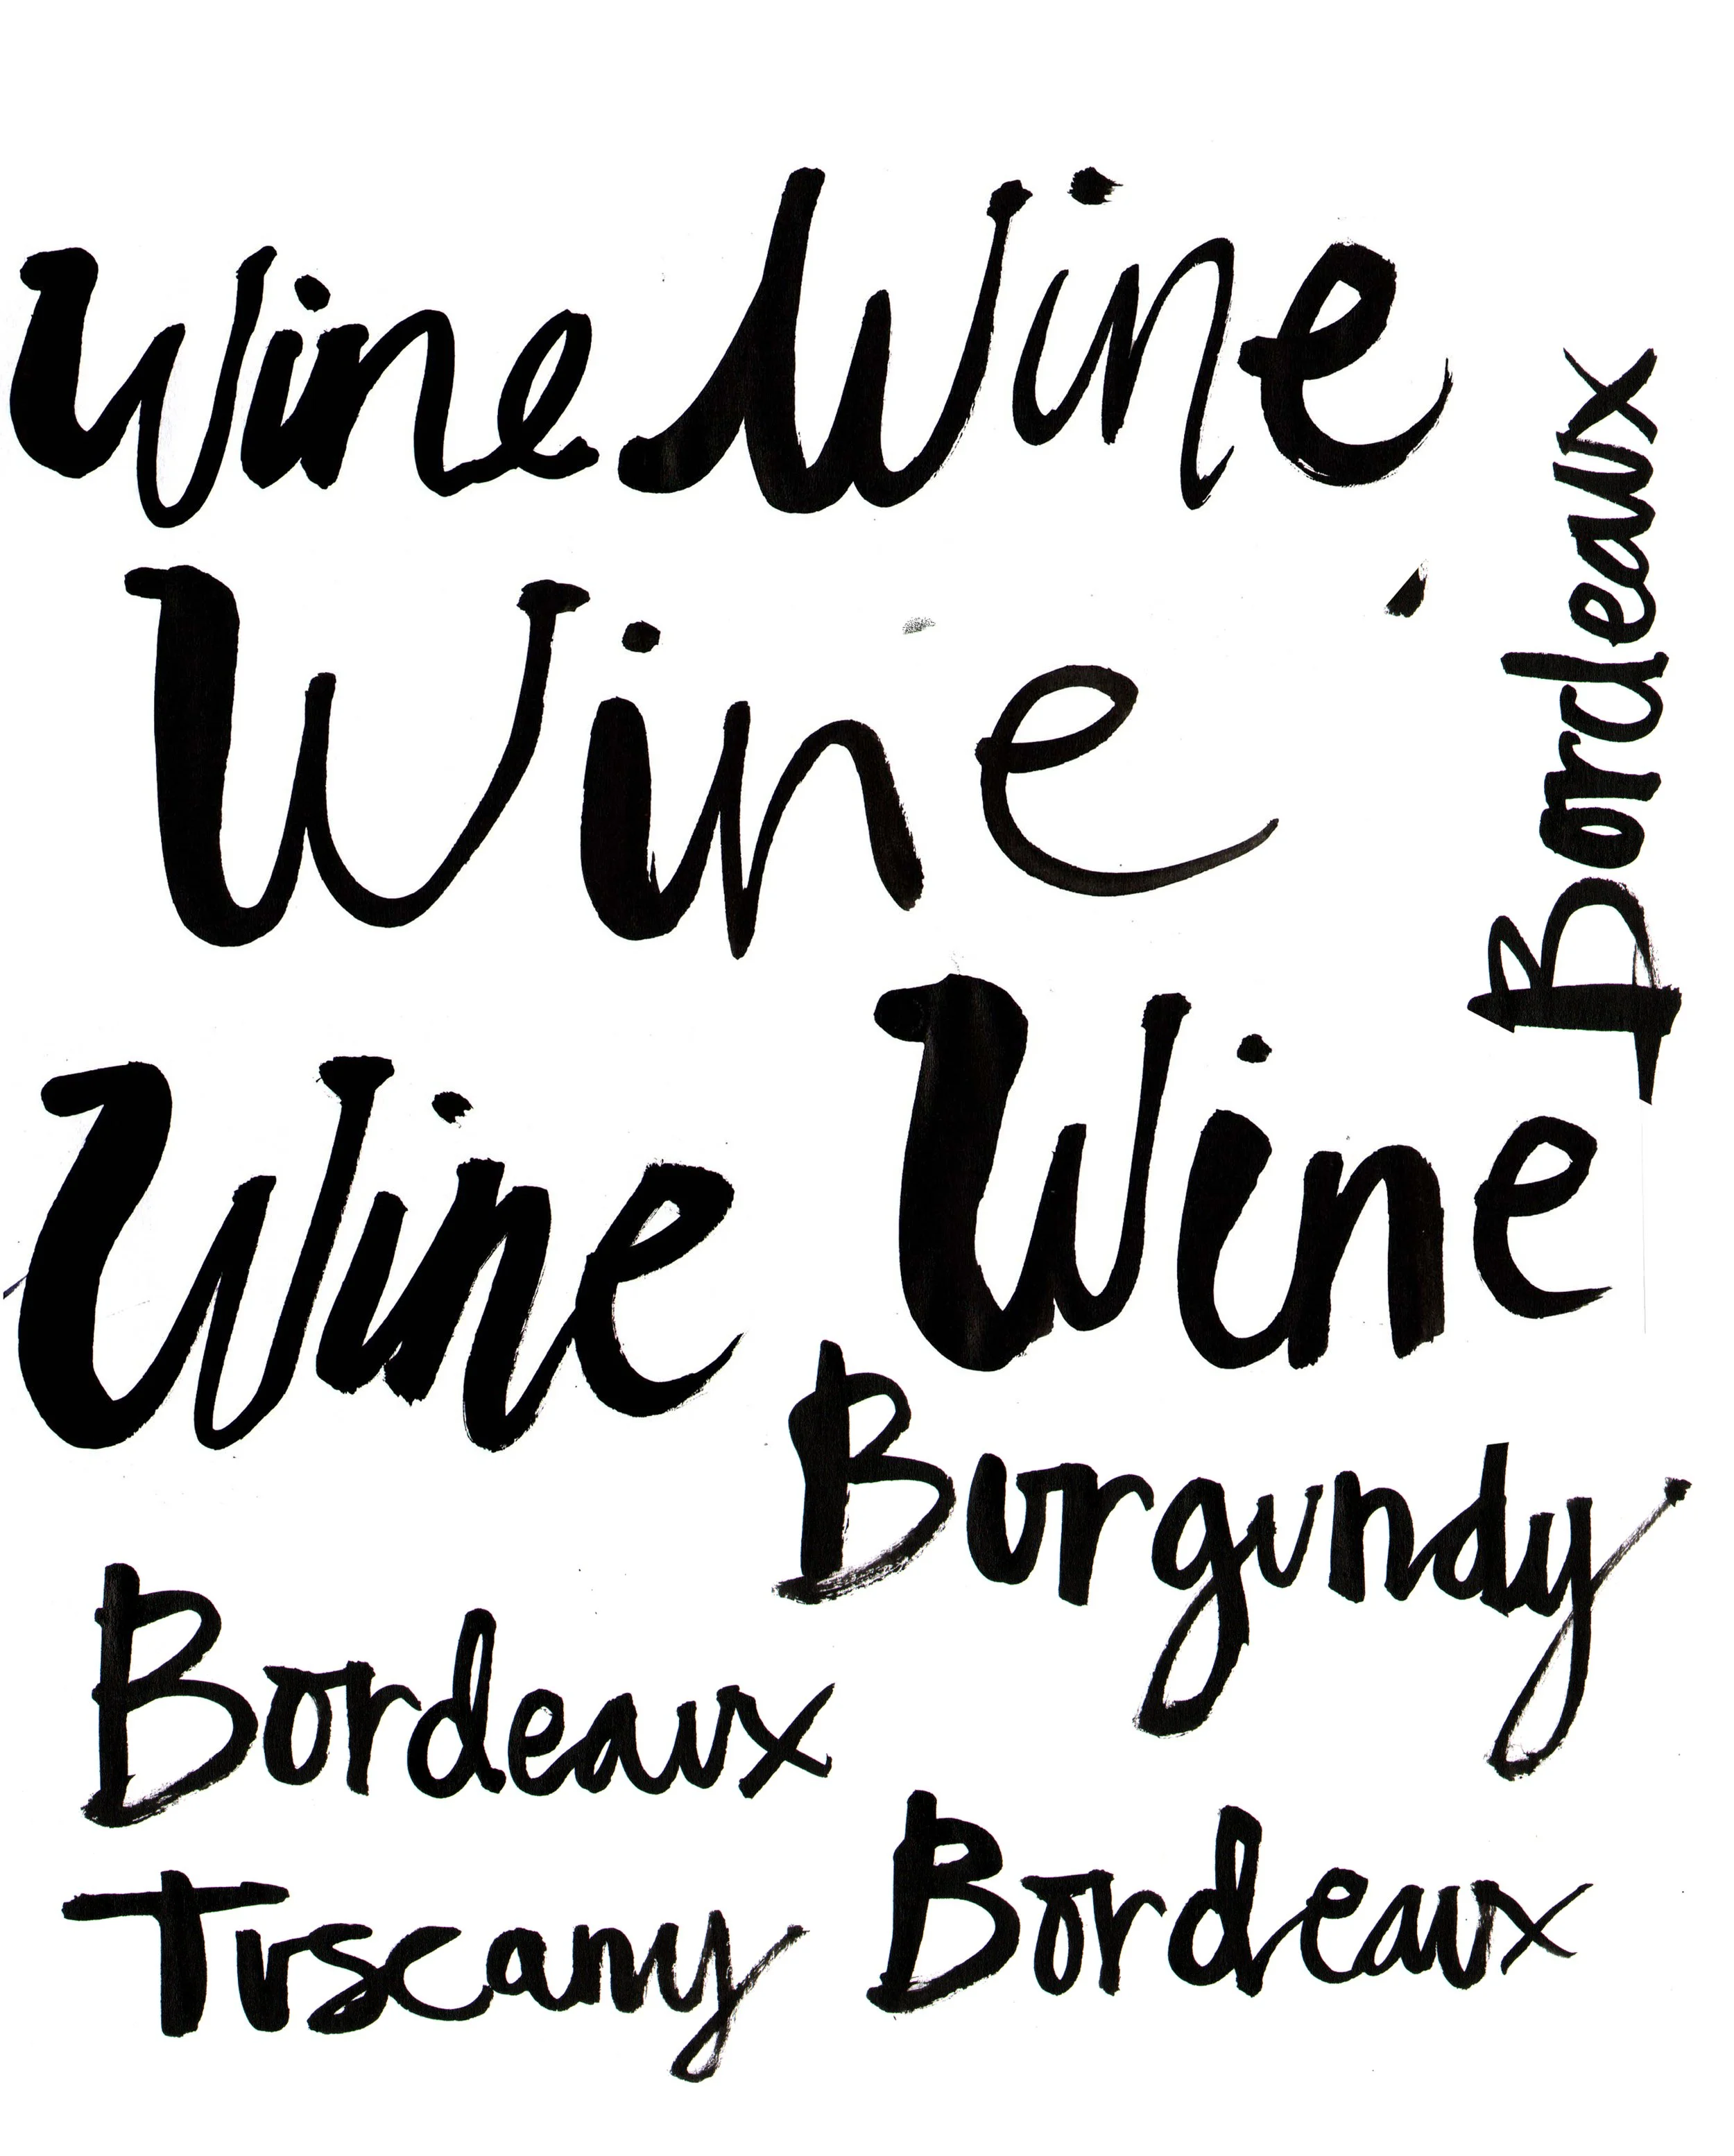 Wine Wine
Wine
Bordeaux
Wine Wine
Burgundy
Bordeaux
Tuscany Bordeaux